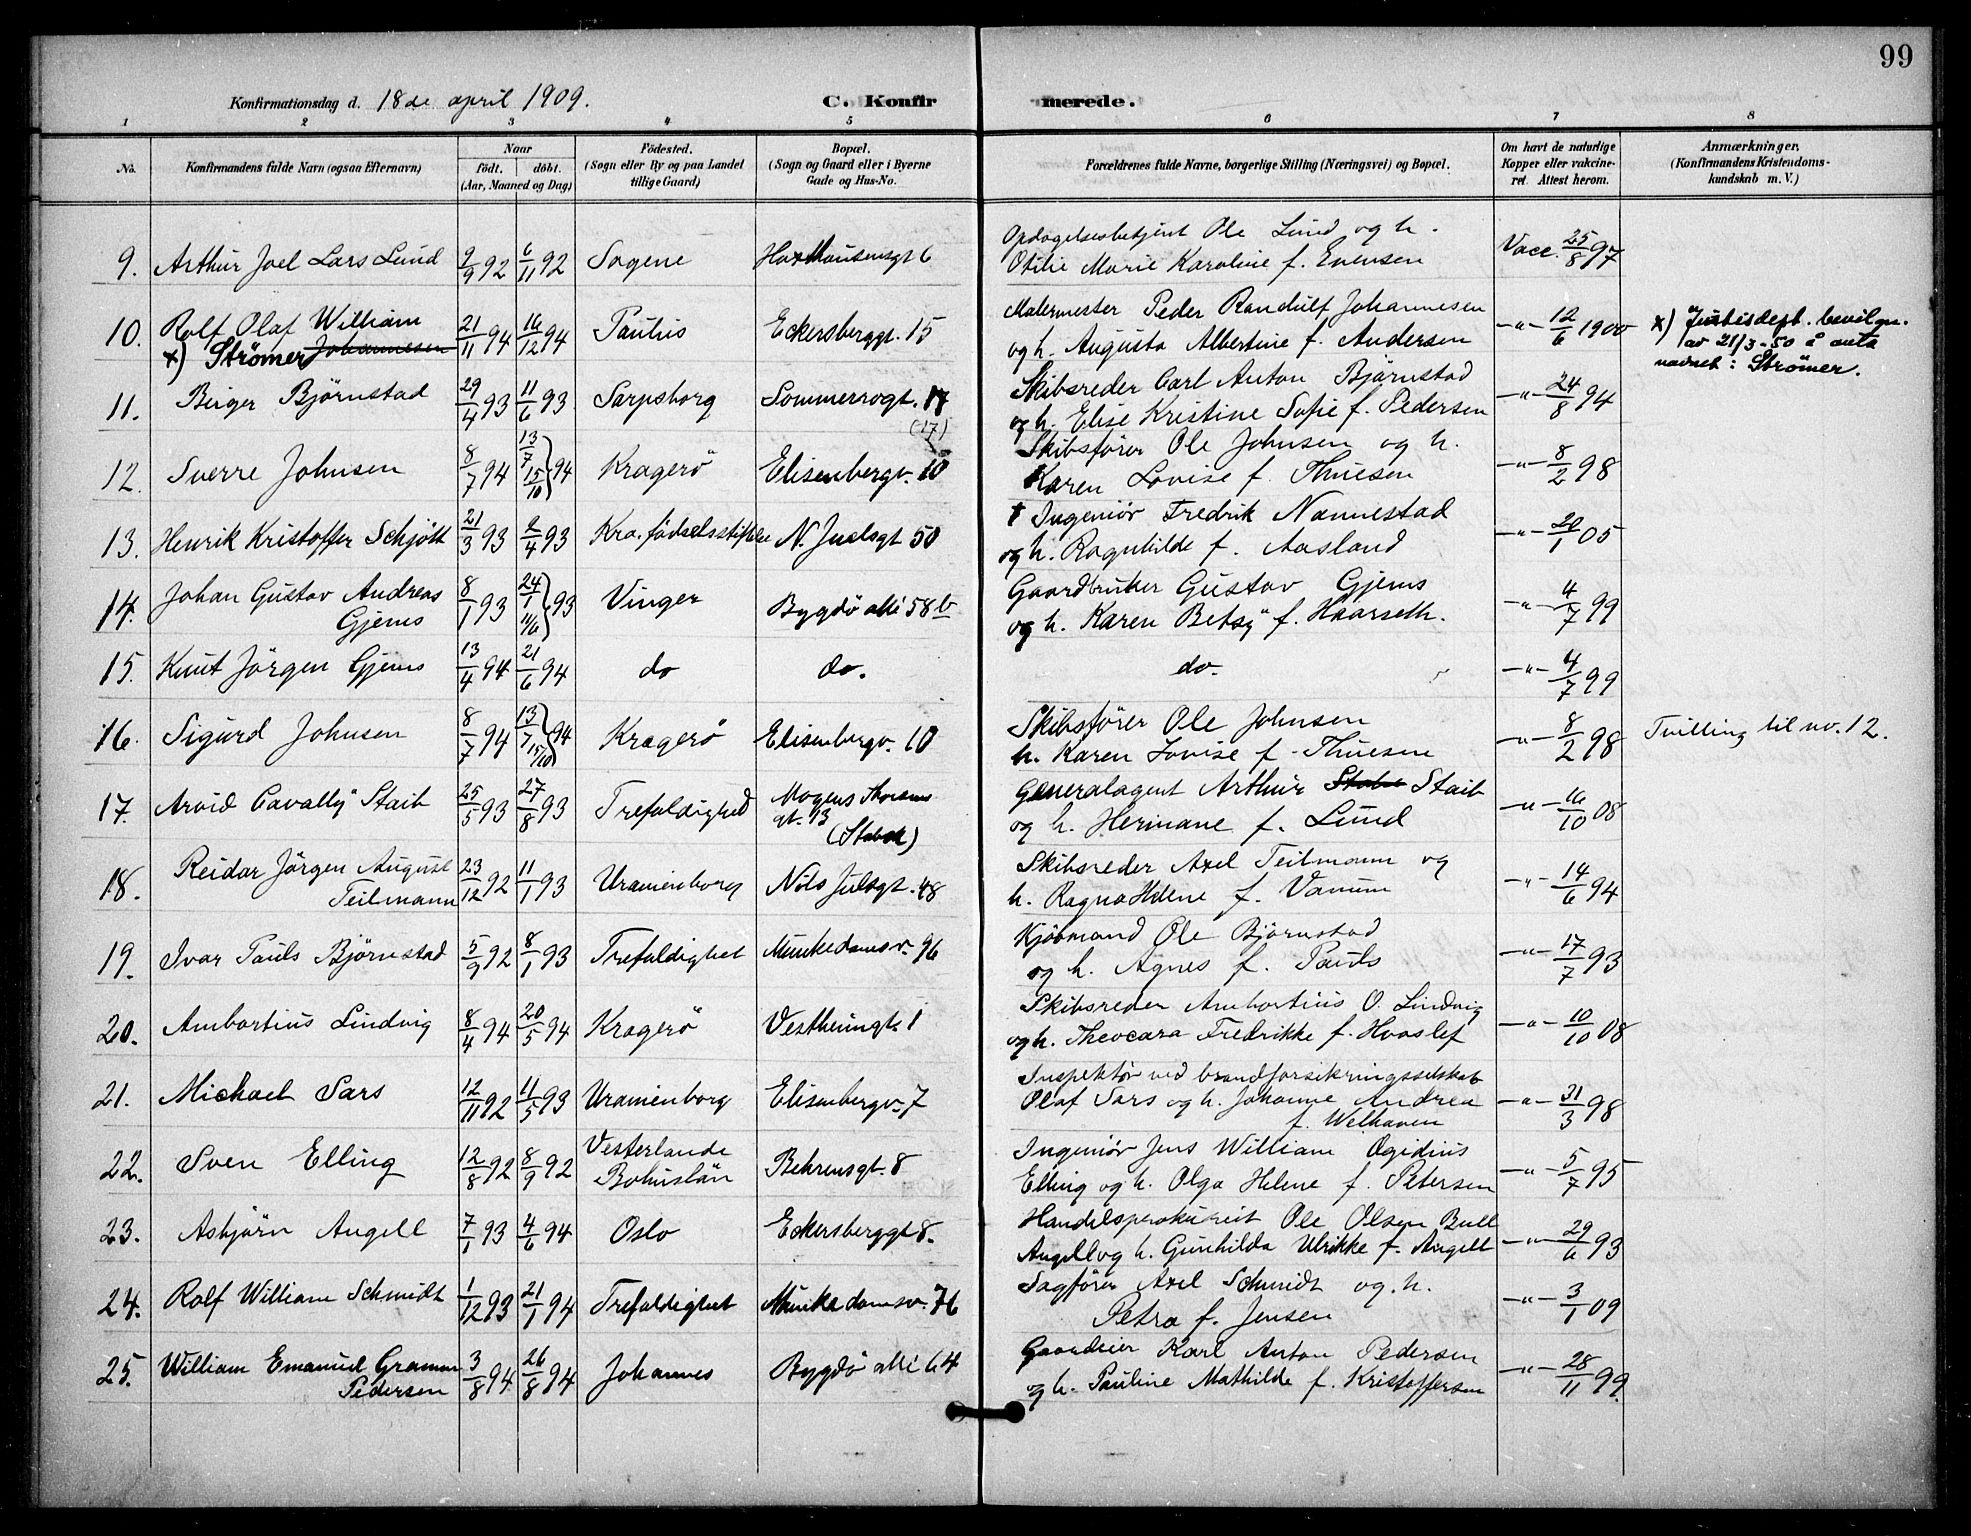 99
Konfirmationsdag d. 18de april 1909. C. Konfirmerede.
1 2 3 4 5 6 7 8
No. Konfirmandens fulde Navn (ogsaa Efternavn) Naar født. døbt. (Aar, Maaned og Dag) Fødested. (Sogn eller By og paa Landet tillige Gaard) Bopæl. (Sogn og Gaard eller i Byerne Gade og Hus-No. Forældrenes fulde Navne, borgerlige Stilling (Næringsvei) og Bopæl. Om havt de naturlige Kopper eller vakcineret. Attest herom. Anmærkninger. (Konfirmandens Kristendomskundskab m. V.)
9. Arthur Joel Lars Lund 9/9 92 6/11 92 Sagene Haxthausensgt 6 Opdagelsesbetjent Ole Lund og h. Vacc. 25/8 97
Otilie Marie Karoline f. Evensen
10. Rolf Olaf William 21/11 94 16/12 94 Paulus Eckersberggt. 15 Malermester Peder Randulf Johannesen -"- 12/6 1900 x) Justisdept. bevilgn.
x) Strömer Johannesen og h. Augusta Albertine f. Andersen av 21/3-50 å anta
navnet: Strömer.
11. Birger Björnstad 29/4 93 11/6 93 Sarpsborg Sommerrogt. 17 Skibsreder Carl Anton Björnstad -"- 24/8 94
(17) og h. Elise Kristine Sofie f. Pedersen
12. Sverre Johnsen 8/7 94 13/7 15/10 } 94 Kragerö Elisenbergv. 10 Skibsfører Ole Johnsen og h. -"- 8/2 98
Karen Lovise f. Thuesen
13. Henrik Kristoffer Schjött 21/3 93 2/4 93 Kra. fødselsstiftelse N. Juelsgt 50 † Ingeniör Fredrik Nannestad -"- 20/1 05
og h. Ragnhilde f. Aasland
14. Johan Gustav Andreas 8/1 93 24/1 11/6 } 93 Vinger Bygdö allé 58 b Gaardbruker Gustav Gjems -"- 4/7 99
Gjems og h. Karen Betsy f. Haarseth.
15. Knut Jörgen Gjems 13/4 94 21/6 94 do do. do. -"- 4/7 99
16. Sigurd Johnsen 8/7 94 13/7 15/10 } 94 Kragerö Elisenbergv. 10 Skibsfører Ole Johnsen -"- 8/2 98 Tvilling til no. 12.
h. Karen Lovise f. Thuesen
17. Arvid Cavally Staib 25/5 93 27/8 93 Trefoldighed Mogens Thorsens Generalagent Arthur Staib -"- 16/10 08
gt. 13 og h. Hermane f. Lund
(Stabæk)
18. Reidar Jörgen August 23/12 92 11/1 93 Uranienborg Nils Julsgt. 48 Skibsreder Axel Teilmann og -"- 14/6 94
Teilmann h. Ragna Helene f. Vanum
19. Ivar Pauls Björnstad 5/9 92 8/1 93 Trefoldighet Munkedamsv. 96 Kjöbmand Ole Björnstad -"- 17/7 93
og h. Agnes f. Pauls
20. Ambortius Lindvig 8/4 94 20/5 94 Kragerö Vestheimgt. 1 Skibsreder Ambortius O. Lindvig -"- 10/10 08
og h. Theocara Fredrikke f. Hvoslef
21. Michael Sars 12/11 92 11/5 93 Uranienborg Elisenbergv. 7 Inspektör ved brandforsikringsselskab -"- 31/3 98
Olaf Sars og h. Johanne Andrea
f. Welhaven
22. Sven Elling 12/8 92 8/9 92 Vesterlanda Behrensgt. 8 Ingeniör Jens William Ægidius -"- 5/7 95
Bohuslän Elling og h. Olga Helene f. Petersen
23. Asbjörn Angell 7/1 93 4/6 94 Oslo Eckersberggt 8. Handelsprokurist Ole Olsen Bull -"- 29/6 93
Angell og h. Gunhilda Ulrikke f. Angell
24. Rolf William Schmidt 1/12 93 21/1 94 Trefoldighet Munkedamsv. 76 Sagförer Axel Schmidt og h. -"- 3/1 09
Petra f. Jensen
25. William Emanuel Gramm 3/8 94 26/8 94 Johannes Bygdö allé 64 Gaardeier Karl Anton Pedersen -"- 28/11 99.
Pedersen og h. Pauline Mathilde f. Kristoffersen